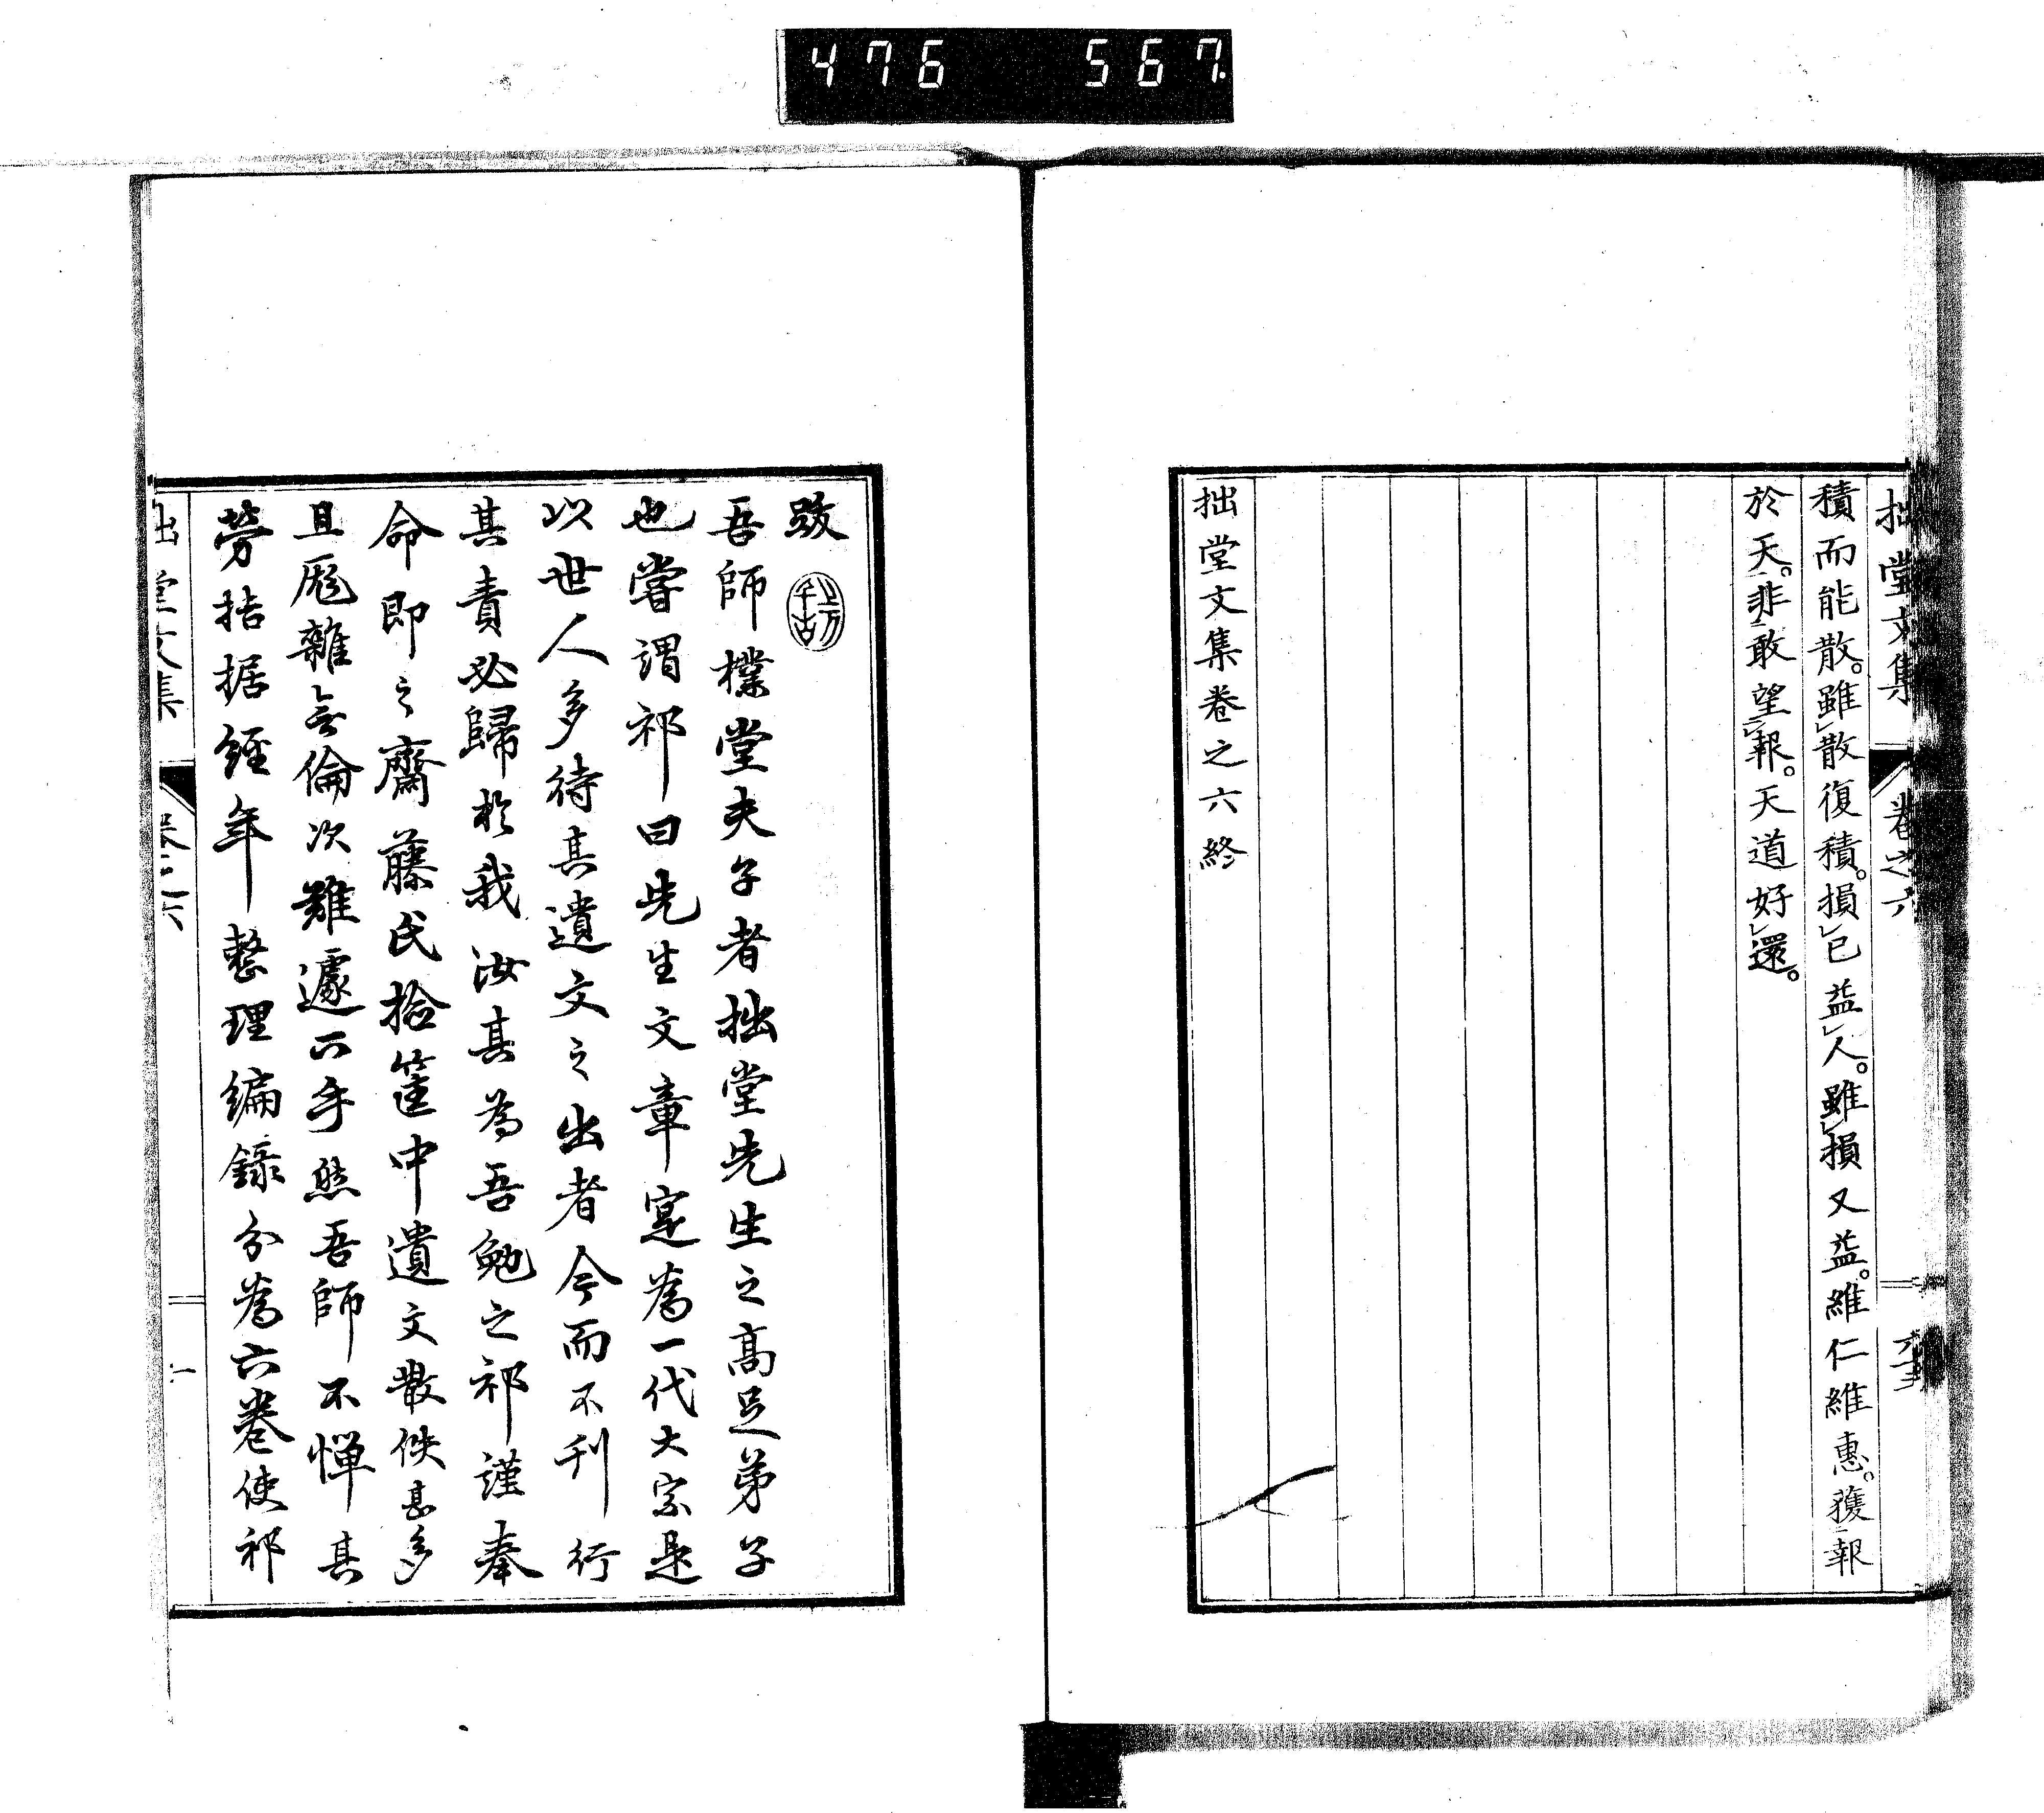 476 567.
拙堂文集 卷之六
積而能散。雖散復積。損已益人。雖損又益。維仁維惠。獲報
於天。非敢望報。天道好還。
拙堂文集卷之六終
跋
吾師樸堂夫子者拙堂先生之高足弟子
也嘗謂祁曰先生文章寔為一代大宗是
以世人多待其遺文之出者今而不刊行
其責必歸於我汝其為吾勉之祁謹奉
命即之齋藤氏撿筐中遺文散佚甚多
且厖雜無倫次難遽下手然吾師不憚其
勞拮据經年整理編錄分為六卷使祁
拙堂文集 卷之六 一